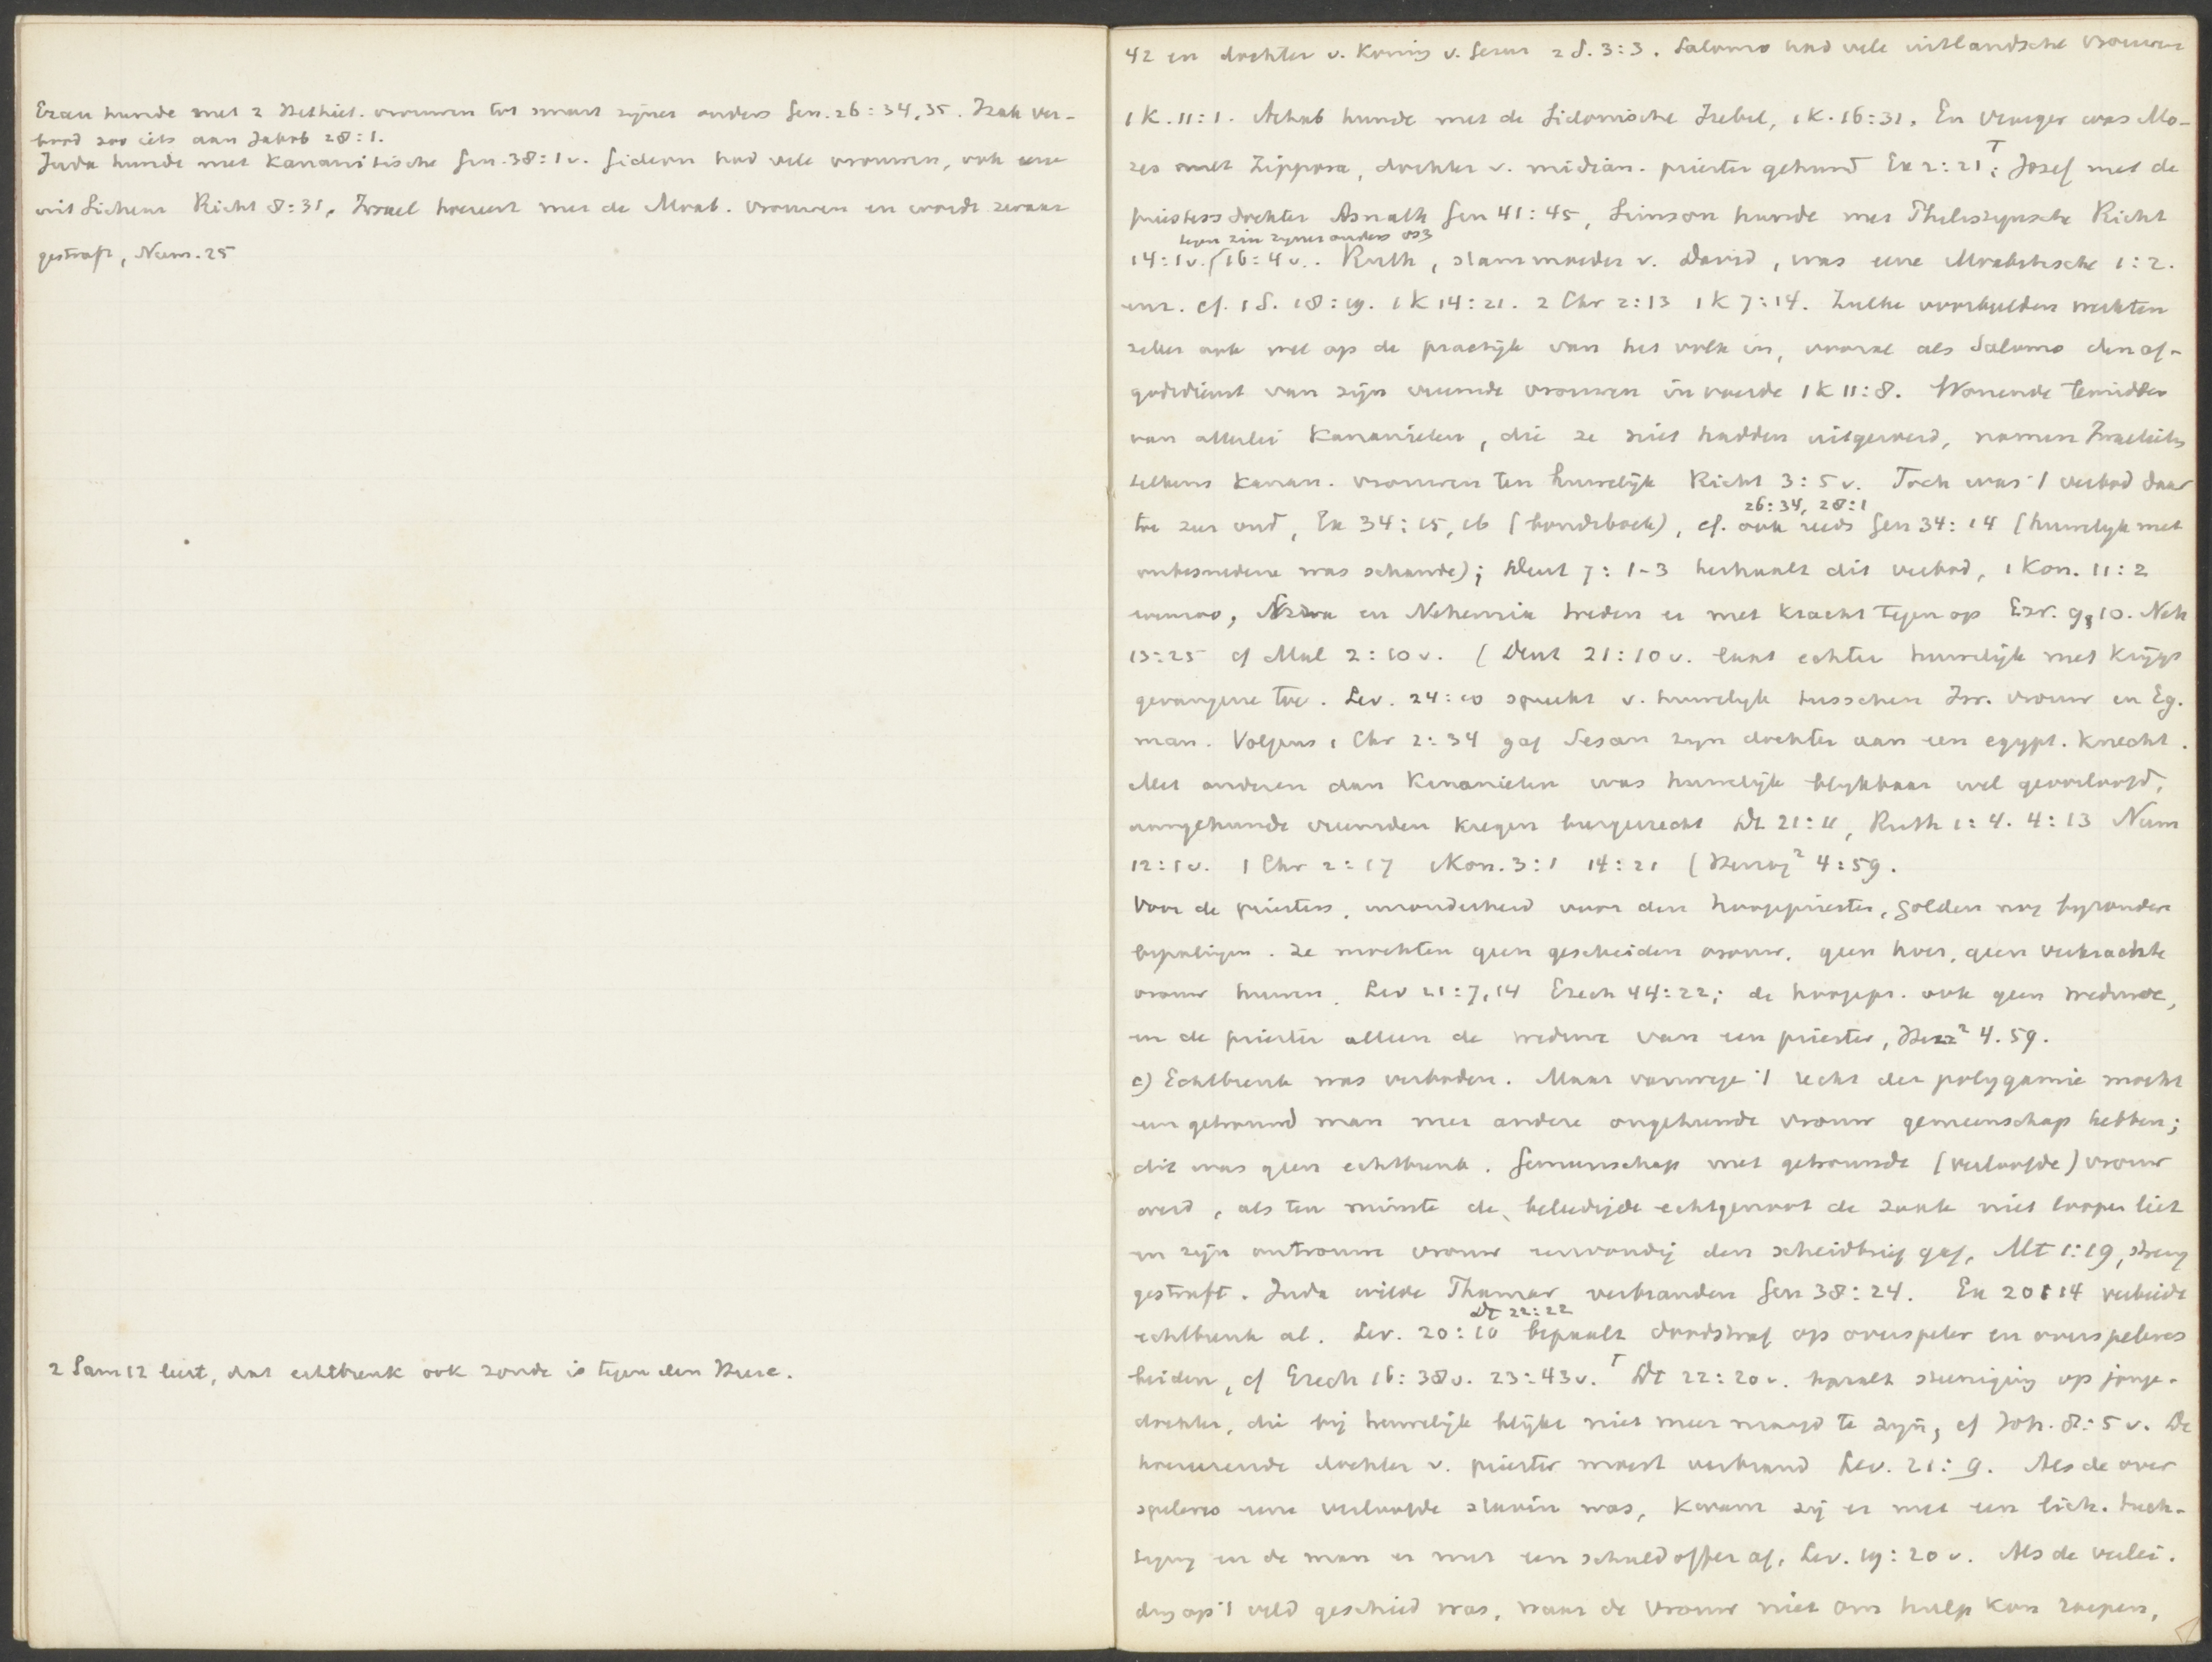 Ezau huwde met 2 Hethiet. vrouwen tot smart zijner ouders Gen. 26:34,35. Izak ver-
bood zoo iets aan Jakob 28:1.
Juda huwde met Kanaanitische Gen. 38:1 v. Gideon had vele vrouwen, ook eene
uit Sichem Richt 8:31. Israel hoereert met de Moab. vrouwen en wordt zwaar
gestraft, Num. 25
2 Sam 12 leert, dat echtbreuk ook zonde is tegen den Heere.
42 en dochter v. Koning v. Gesur 2 S. 3:3. Salomo had vele uitlandsche vrouwen
1 K. 11:1. Achab huwde met de Sidonische Izebel, 1 K. 16:31. En vroeger was Mo-
zes met Zippora, dochter v. midian. priester gehuwd Ex 2:21; Jozef met de
priestersdochter Asnath Gen 41:45, Simson huwde met Philistijnsche Richt
tegen zin zijner ouders vs3
14:1 v. 16:4 v. Ruth, stammoeder v. David, was eene Moabitische 1:2.
enz. cf. 1 S. 18:19. 1 K 14:21. 2 Chr 2:13 1 K 7:14. Zulke voorbeelden werkten
zeker ook wel op de practijk van het volk in, vooral als Salomo den af-
godsdienst van zijn vreemde vrouwen invoerde 1 K 11:8. Wonende temidden
van allerlei Kananieten, die ze niet hadden uitgeroeid, namen Israelieten
telkens Kanan. vrouwen ten huwelijk Richt 3:5 v. Toch was 't verbod daar
26:34, 28:1
toe zeer oud, Ex 34:15,16 (bondsboek), cf. ook reeds Gen 34:14 (huwelijk met
onbesnedene was schande); Deut 7:1-3 herhaalt dit verbod, 1 Kon. 11:2
evenzoo, Ezra en Nehemia treden er met kracht tegen op Ezr. 9,10. Neh
13:25 cf Mal 2:10 v. (Deut 21:10 v. laat echter huwelijk met krijgs
gevangene toe. Lev. 24:10 spreekt v. huwelijk tusschen Isr. vrouw en Eg.
man. Volgens 1 Chr 2:34 gaf Sesan zijn dochter aan een egypt. knecht.
Met anderen dan Kananieten was huwelijk blijkbaar wel geoorloofd,
aangehuwde vreemden kregen burgerrecht Dt 21:11, Ruth 1:4. 4:13 Num
12:1 v. 1 Chr 2:17 1 Kon. 3:1 14:21 (Herzog² 4:59.
Voor de priesters, inzonderheid voor den hoogepriester, golden nog byzondere
bepalingen. Ze mochten geen gescheiden vrouw, geen hoer, geen verkrachte
vrouw huwen. Lev 21:7,14 Ezech 44:22; de hoogepr. ook geen weduwe,
en de priester alleen de weduwe van een priester, Herz² 4.59.
c) Echtbreuk was verboden. Maar vanwege 't recht der polygamie mocht
een getrouwd man met andere ongehuwde vrouw gemeenschap hebben;
dit was geen echtbreuk. Gemeenschap met getrouwde (verloofde) vrouw
werd, als ten minste de beleedigde echtgenoot de zaak niet loopen liet
en zijn ontrouwe vrouw eenvoudig den scheidbrief gaf, Mt 1:19, streng
gestraft. Juda wilde Thamar verbranden Gen 38:24. Ex 20:14 verbiedt
Dt 22:22
echtbreuk al. Lev. 20:10 bepaalt doodstraf op overspeler en overspeleres
beiden, cf Ezech 16:38 v. 23:43 v. Dt 22:20 v. bepaalt steeniging op jonge-
dochter, die bij huwelijk blijkt niet meer maagd te zijn, cf Joh. 8:5 v. De
hoereerende dochter v. priester moest verbrand Lev. 21:9. Als de over
speleres eene verloofde slavin was, kwam zij er met een lich. tuch-
tiging en de man er met een schuldoffer af. Lev. 19:20 v. Als de verlei-
ding op 't veld geschied was, waar de vrouw niet om hulp kon roepen,